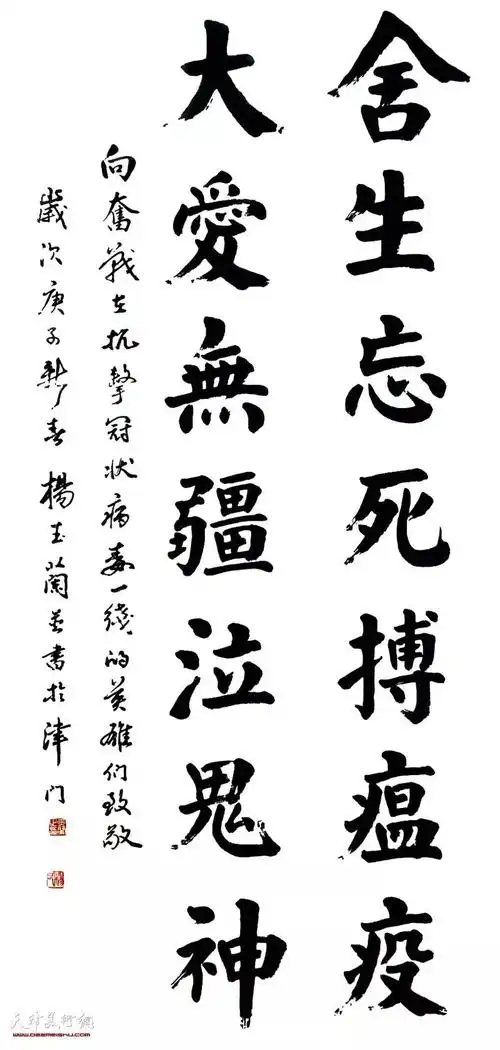 舍生忘死搏瘟疫
大愛無疆泣鬼神
向奮戰在抗擊冠状病毒一綫的英雄们致敬
歲次庚子新春楊玉蘭並書於津门
天津美術網
www.022meishu.com